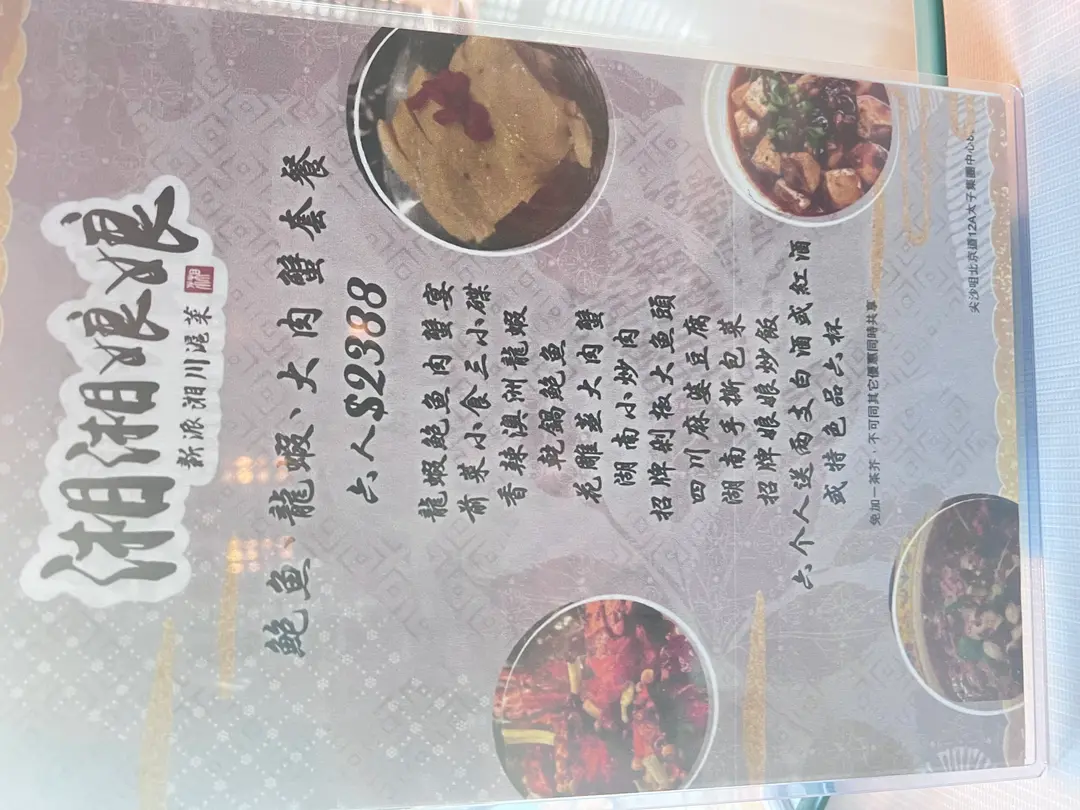 湘湘娘娘
新派湘川滬菜
鮑魚、龍蝦、大肉蟹套餐
六人$2388
龍蝦鮑魚肉蟹宴
前菜小食三小碟
香辣澳洲龍蝦
乾鍋鮑魚
花雕蒸大肉蟹
湖南小炒肉
招牌剁椒大魚頭
四川麻婆豆腐
湖南手撕包菜
招牌娘娘炒飯
六个人送两支白酒或紅酒
或特色品六杯
免加一茶芥，不可同其它優惠同時共享
尖沙咀北京道12A太子集團中心